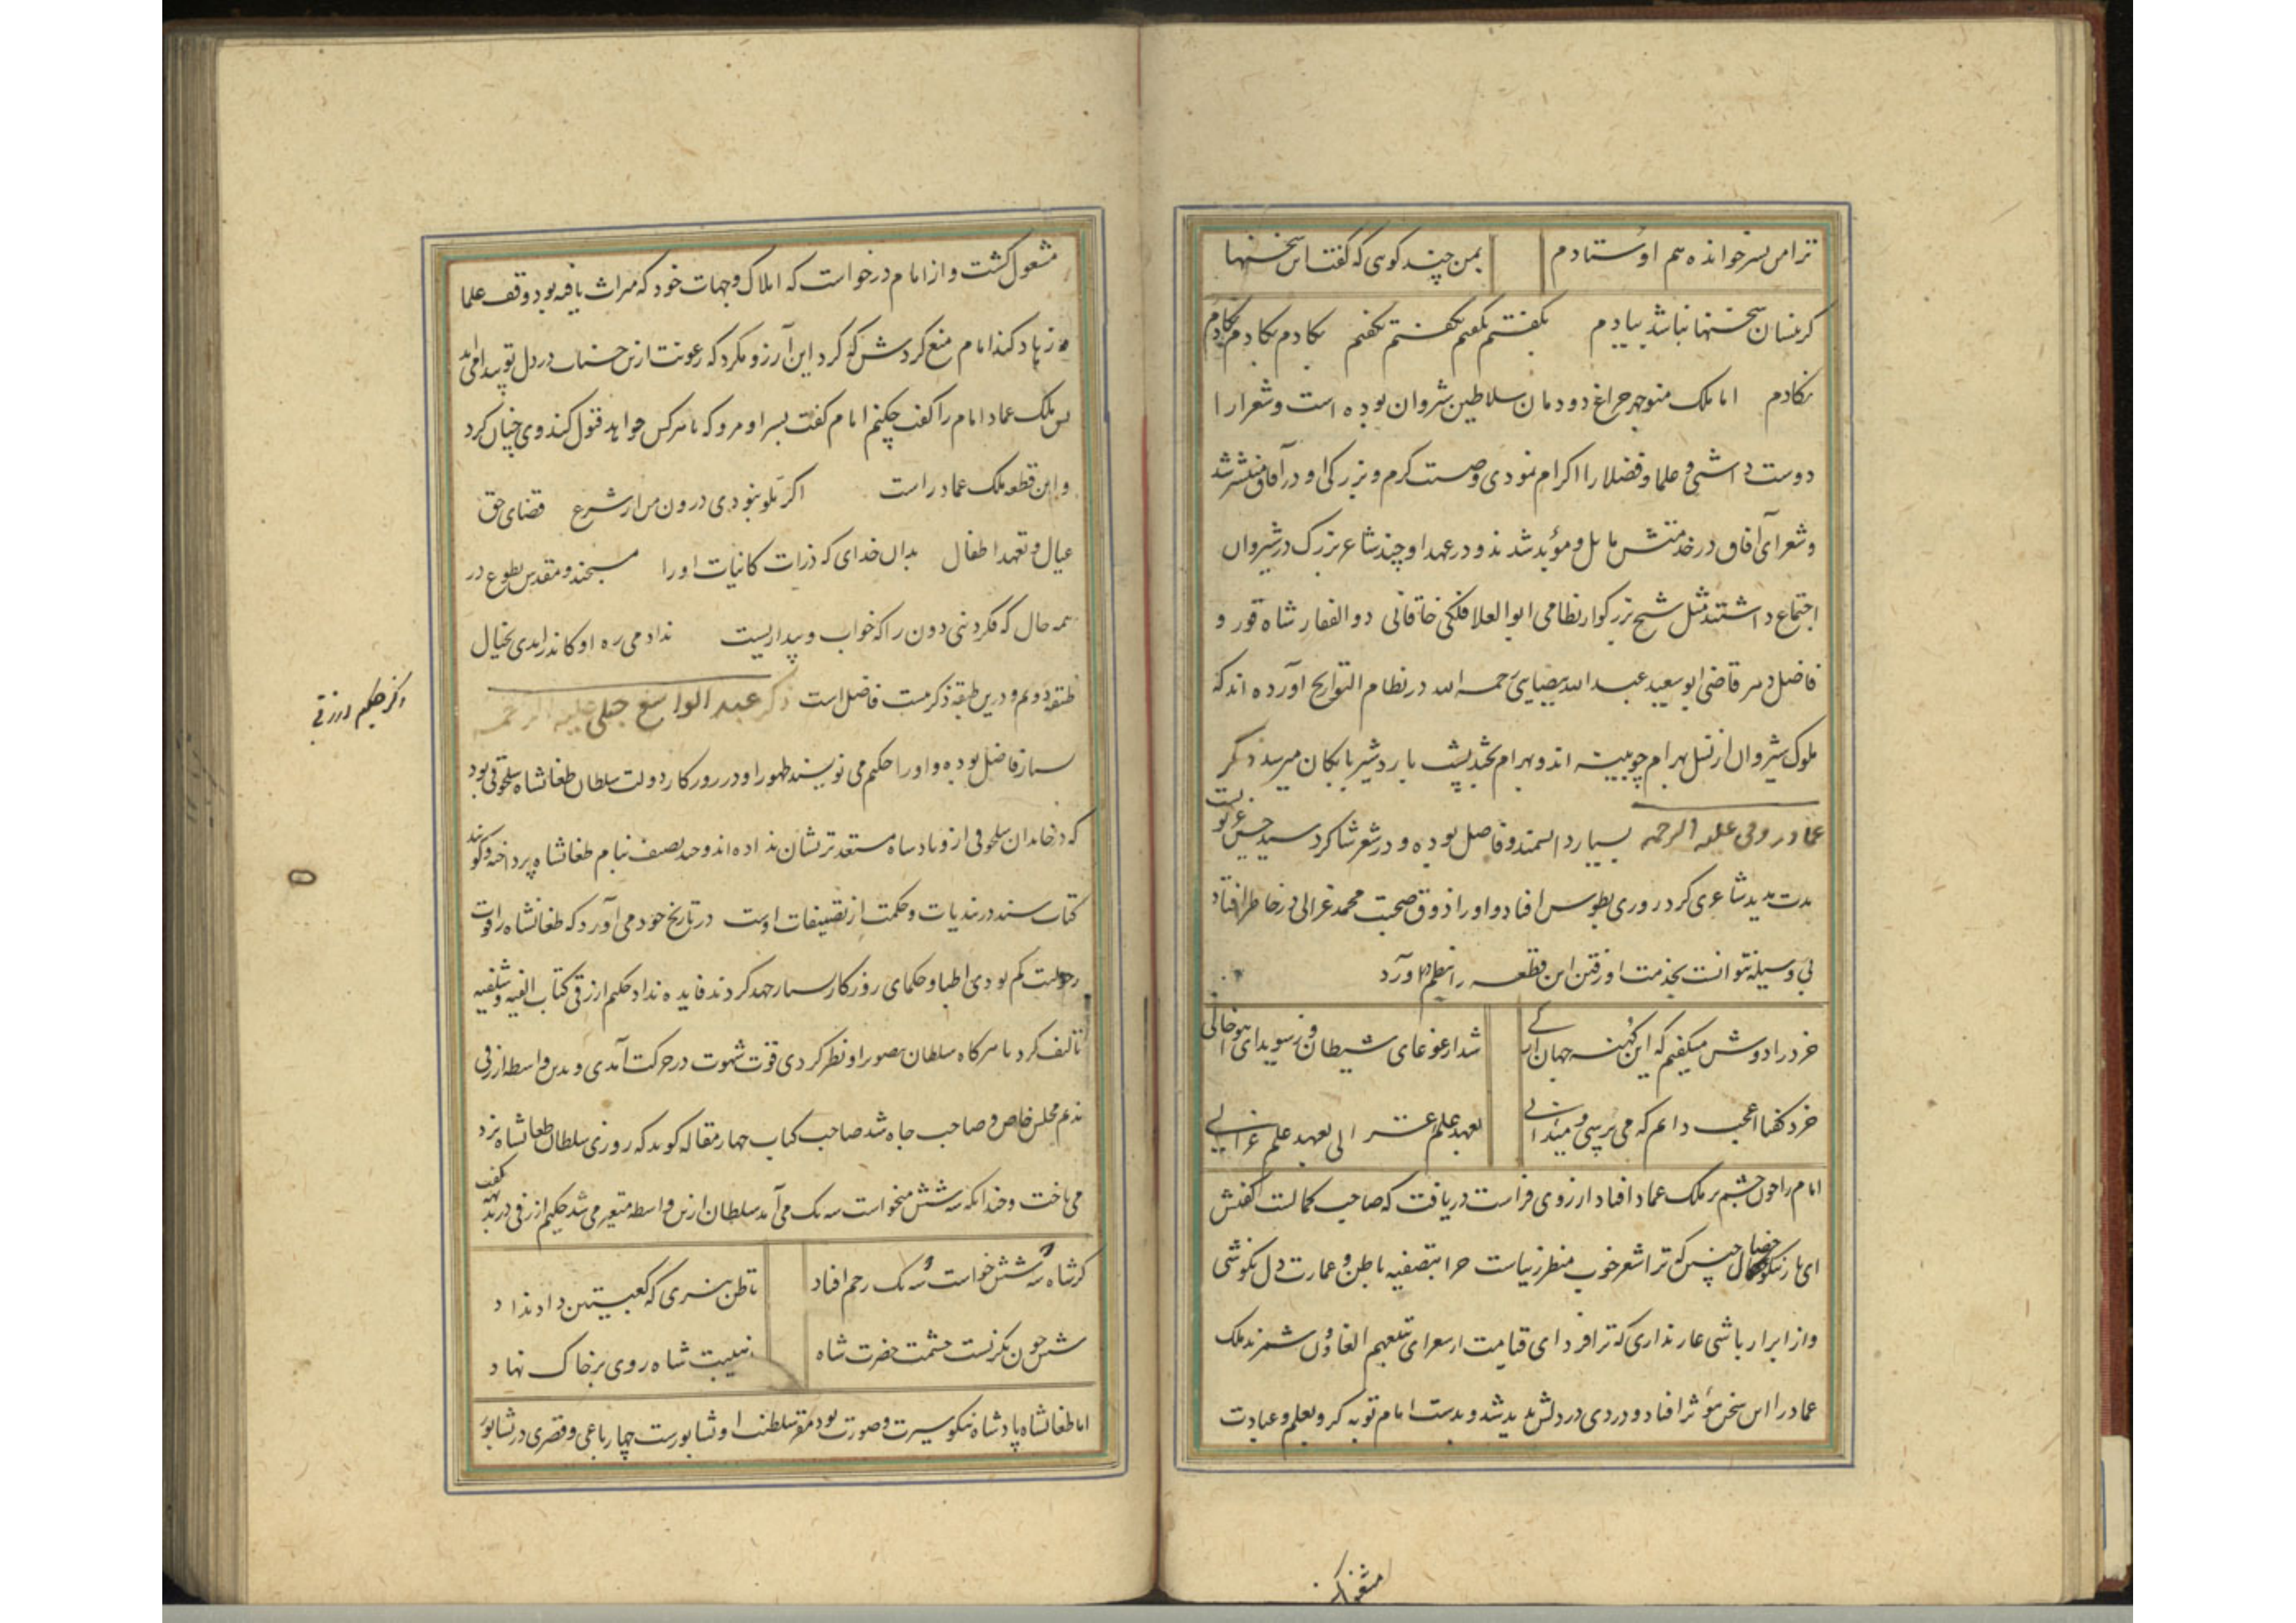 ترا من پسر خوانده هم اوستادم بمن چند کوی که گفت این سخنها
کر نسان سخنها نباشد بیادم بگفتم بگفتم بگفتم بگفتم بکادم بکادم بکادم
بکادم اما ملک منوچهر چراغ دودمان سلاطین شروان بوده است و شعرا را
دوست داشتی و علما و فضلا را اکرام نمودی وصیت کرم و بزرکی او در آفاق منتشر شد
و شعرای آفاق در خدمتش مایل و مؤید شدند و در عهد او چند شاعر بزرک در شیروان
اجتماع داشتند مثل شیخ بزرکوار نظامی ابوالعلا فلکی خاقانی ذوالفقار شاه قور و
فاضل دهر قاضی ابو سعید عبد الله بیضایی رحمه الله در نظام التواریخ آورده اند که
ملوک شیروان از نسل بهرام چوبینه اند و بهرام بچند پشت باردشیر بابکان میرسد ذکر
عماد زوزنی علیه الرحمه بسیار دانشمند و فاضل بوده و در شعر شاکرد سید حسن غزنویست
مدت مدید شاعری کرد روزی بطوس افتاد و او را ذوق صحبت محمد غزالی در خاطر افتاد
بی وسیله نتوانست بخدمت او رفتن این قطعه را بنظم در آورد
خرد را دوش میگفتم که این کهنه جهان تا کی شد از غوغای شیطان و ز سودای هوا خالی
خرد کفتا عجب دارم که می پرسی و میدانی بعهد علم غزالی بعهد علم غزالی
امام را چون چشم بر ملک عماد افتاد از روی فراست دریافت که صاحب کمالست کفتش
ای یار نیکو خصال چنین که ترا شعر خوب منظر زیباست چرا بتصفیه باطن و عمارت دل نکوشی
و از ابرار باشی عار نداری که ترا فردای قیامت از شعرای یتبعهم الغاوون شمرند ملک
عماد را این سخن مؤثر افتاد و دردی در دلش پدید شد و بدست امام توبه کرد و بعلم و عبادت
مشغول کشت
مشغول کشت و از امام درخواست که املاک و جهات خود که میراث یافته بود وقف علما
و زهاد کند امام منع کردش که کرد این آرزو مکرد که رعونت ازین حسنات در دل تو پیدا می آید
پس ملک عماد امام را گفت چکنم امام کفت بسر او مرو که تا هر کس خواهد قبول کند وی چنان کرد
و این قطعه ملک عماد راست اکر نلو بنودی درون من از شرع قضای حق
عیال و تعهد اطفال بدان خدای که ذرات کاینات او را مسبحند و مقدس بطوع در
همه حال که فکر دنیی دون را که خواب و پنداریست نداد می ره او کاندر ایدی بخیال
طبقه دویم و درین طبقه ذکر بیست فاضل است ذکر عبد الواسع جبلی علیه الرحمه
ذکر حکیم ازرقی
بسیار فاضل بوده و او را حکیم می نویسند ظهور او در روزکار دولت سلطان طغانشاه سلجوقی بود
که در خاندان سلجوقی ازو پادشاه مستعدتر نشان نداده اند و چند تصنیف بنام طغانشاه پرداخته و کویند
کتاب سند در پندیات و حکمت از تصنیفات اوست در تاریخ خود می آورد که طغانشاه را قوت
رجولیت کم بودی اطبا و حکمای روزکار بسیار جهد کردند فایده نداد حکیم ازرقی کتاب الفیه و شلفیه
تالیف کرد تا هر کاه سلطان بصور او نظر کردی قوت شهوت در حرکت آمدی و بدین واسطه ازرقی
ندیم مجلس خاص و صاحب جاه شد صاحب کتاب چهار مقاله کوید که روزی سلطان طغانشاه نرد
می باخت و چندانکه سه شش میخواست سه یک می آمد سلطان ازین واسطه متغیر می شد حکیم ازرقی در بدیهه کفت
کر شاه سه شش خواست سه یک زخم افتاد تا ظن نبری که کعبتین داد نداد
شش چون نگریست حشمت حضرت شاه از هیبت شاه روی بر خاک نهاد
اما طغانشاه پادشاه نیکو سیرت و صورت بود مقر سلطنت او نشابورست چهار باغی و قصری در نشابور